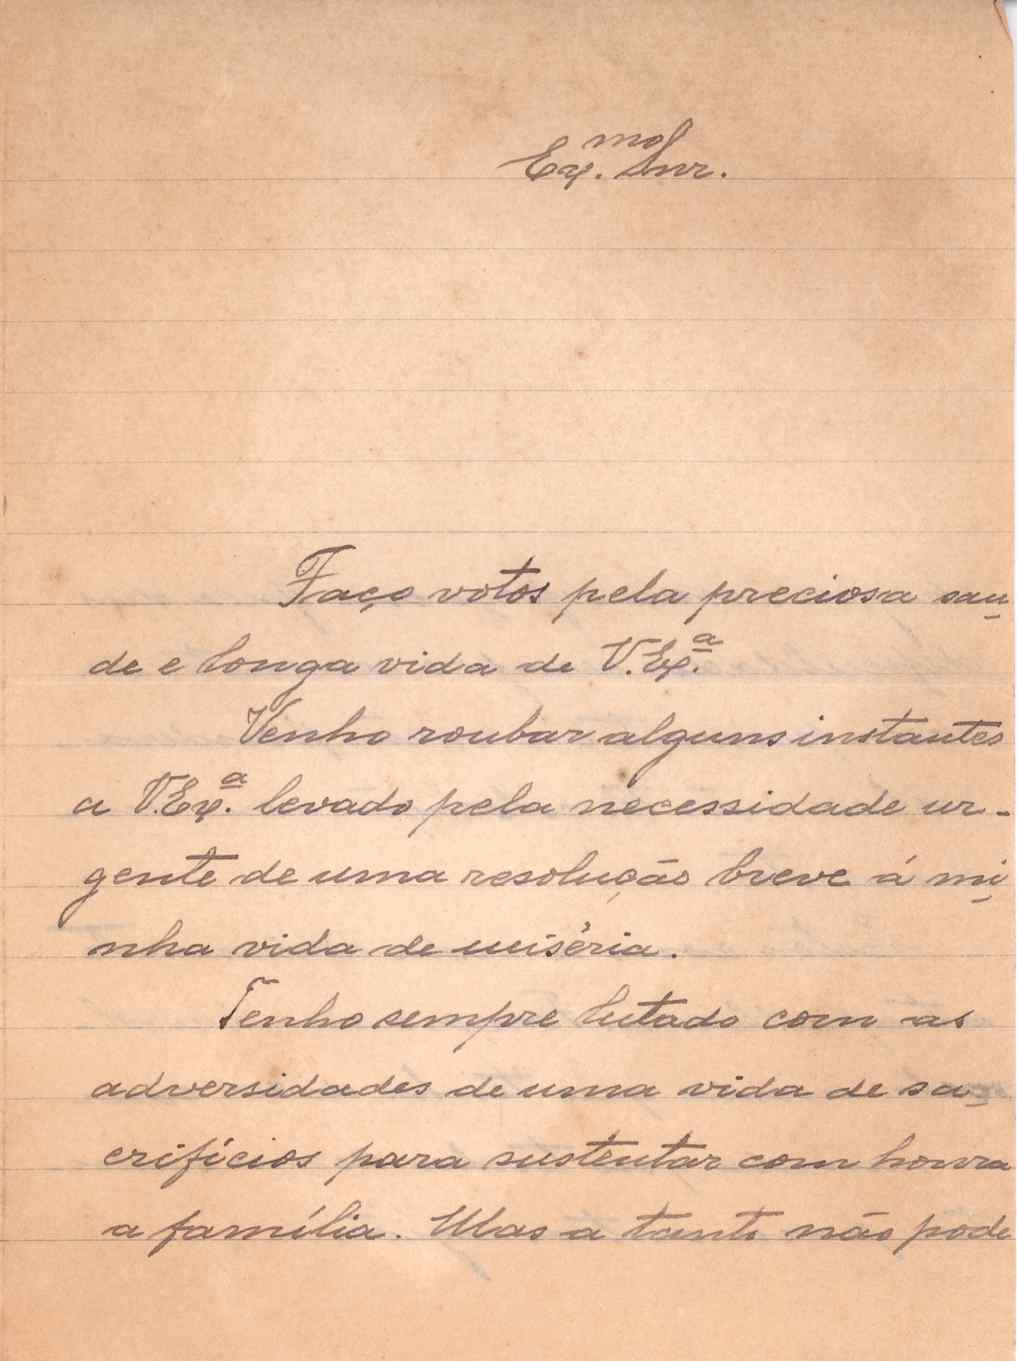 Ex.mo Snr.
Faço votos pela preciosa sau-
de e longa vida de V. Ex.ª
Venho roubar alguns instantes
a V. Ex.ª levado pela necessidade ur-
gente de uma resolução breve á mi-
nha vida de miséria.
Tenho sempre lutado com as
adversidades de uma vida de sa-
crifícios para sustentar com honra
a família. Mas a tanto não pode